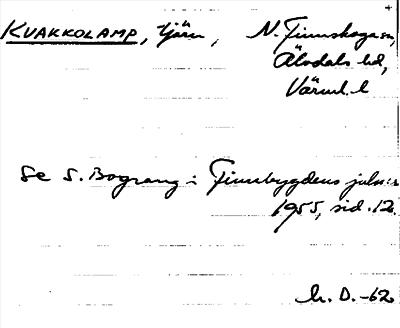 KVAKKOLAMP, tjärn, N. Finnskogen,
Älvdals hd,
Värml. l
Se S. Bograng i Finnbygdens julnr
1955, sid. 12.
h. D. -62